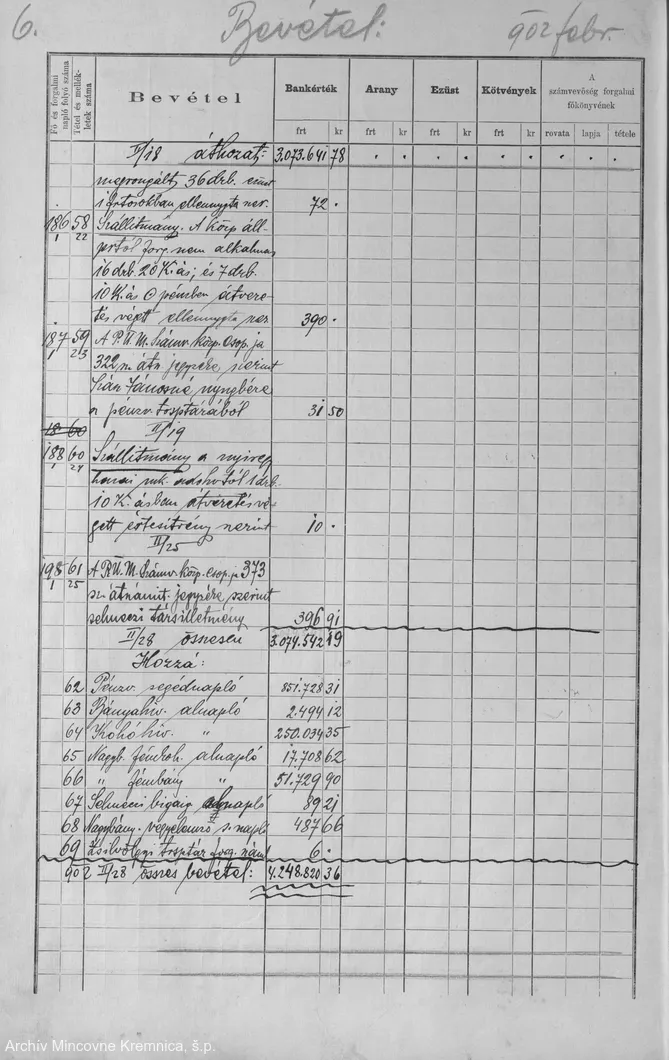 6.
Bevétel:
902 febr.
Fő és forgalmi napló folyó száma
Tétel és mellékletek száma
Bevétel
Bankérték
Arany
Ezüst
Kötvények
A számvevőség forgalmi főkönyvének
frt kr frt kr frt kr frt kr rovata lapja tétele
II/18 áthozat: 3.073.641 78
megrongált 36 drb. ezüst
1 frtosokban ellennygta szer. 72 .
186/1 58/22 Szállítmány. A közp. áll-
forg. nem alkalmas
16 drb. 20 K. ás; és 7 drb.
10 K. ás pénzben átvere-
tés végett ellennygta szer 390 .
187/1 59/23 A P. Ü. M. Számv. közp. csop. ja
322 sz. átn. jegyzéke szerint
Jánosné nyugbére
a pénzv. 31 50
18 60 II/19
188/1 60/24 Szállítmány a nyíregy-
házai adóhtól 1 drb.
10 K. ásban átveretés vé-
gett értesítvény szerint 10 .
II/25
198/1 61/25 A P. Ü. M. Számv. közp. csop. ja 373
sz. átszámít. jegyzéke szerint
selmeczi társilletmény 396 91
II/28 összesen 3.074.542 19
Hozzá:
62 Pénzv. segédnapló 851.728 31
63 Bányahiv. alnapló 2.494 12
64 Kohóhiv. " 250.034 35
65 Nagyb. fémkoh. alnapló 17.708 62
66 " fémbány " 51.729 90
67 Selmeczi bigaig alnapló 89 21
68 Nagybány. vegyelemző s. napló 487 66
69 Zsilvölgyi forg. szánt 6 .
902 II/28 összes bevétel: 4.248.820 36
Archív Mincovne Kremnica, š.p.